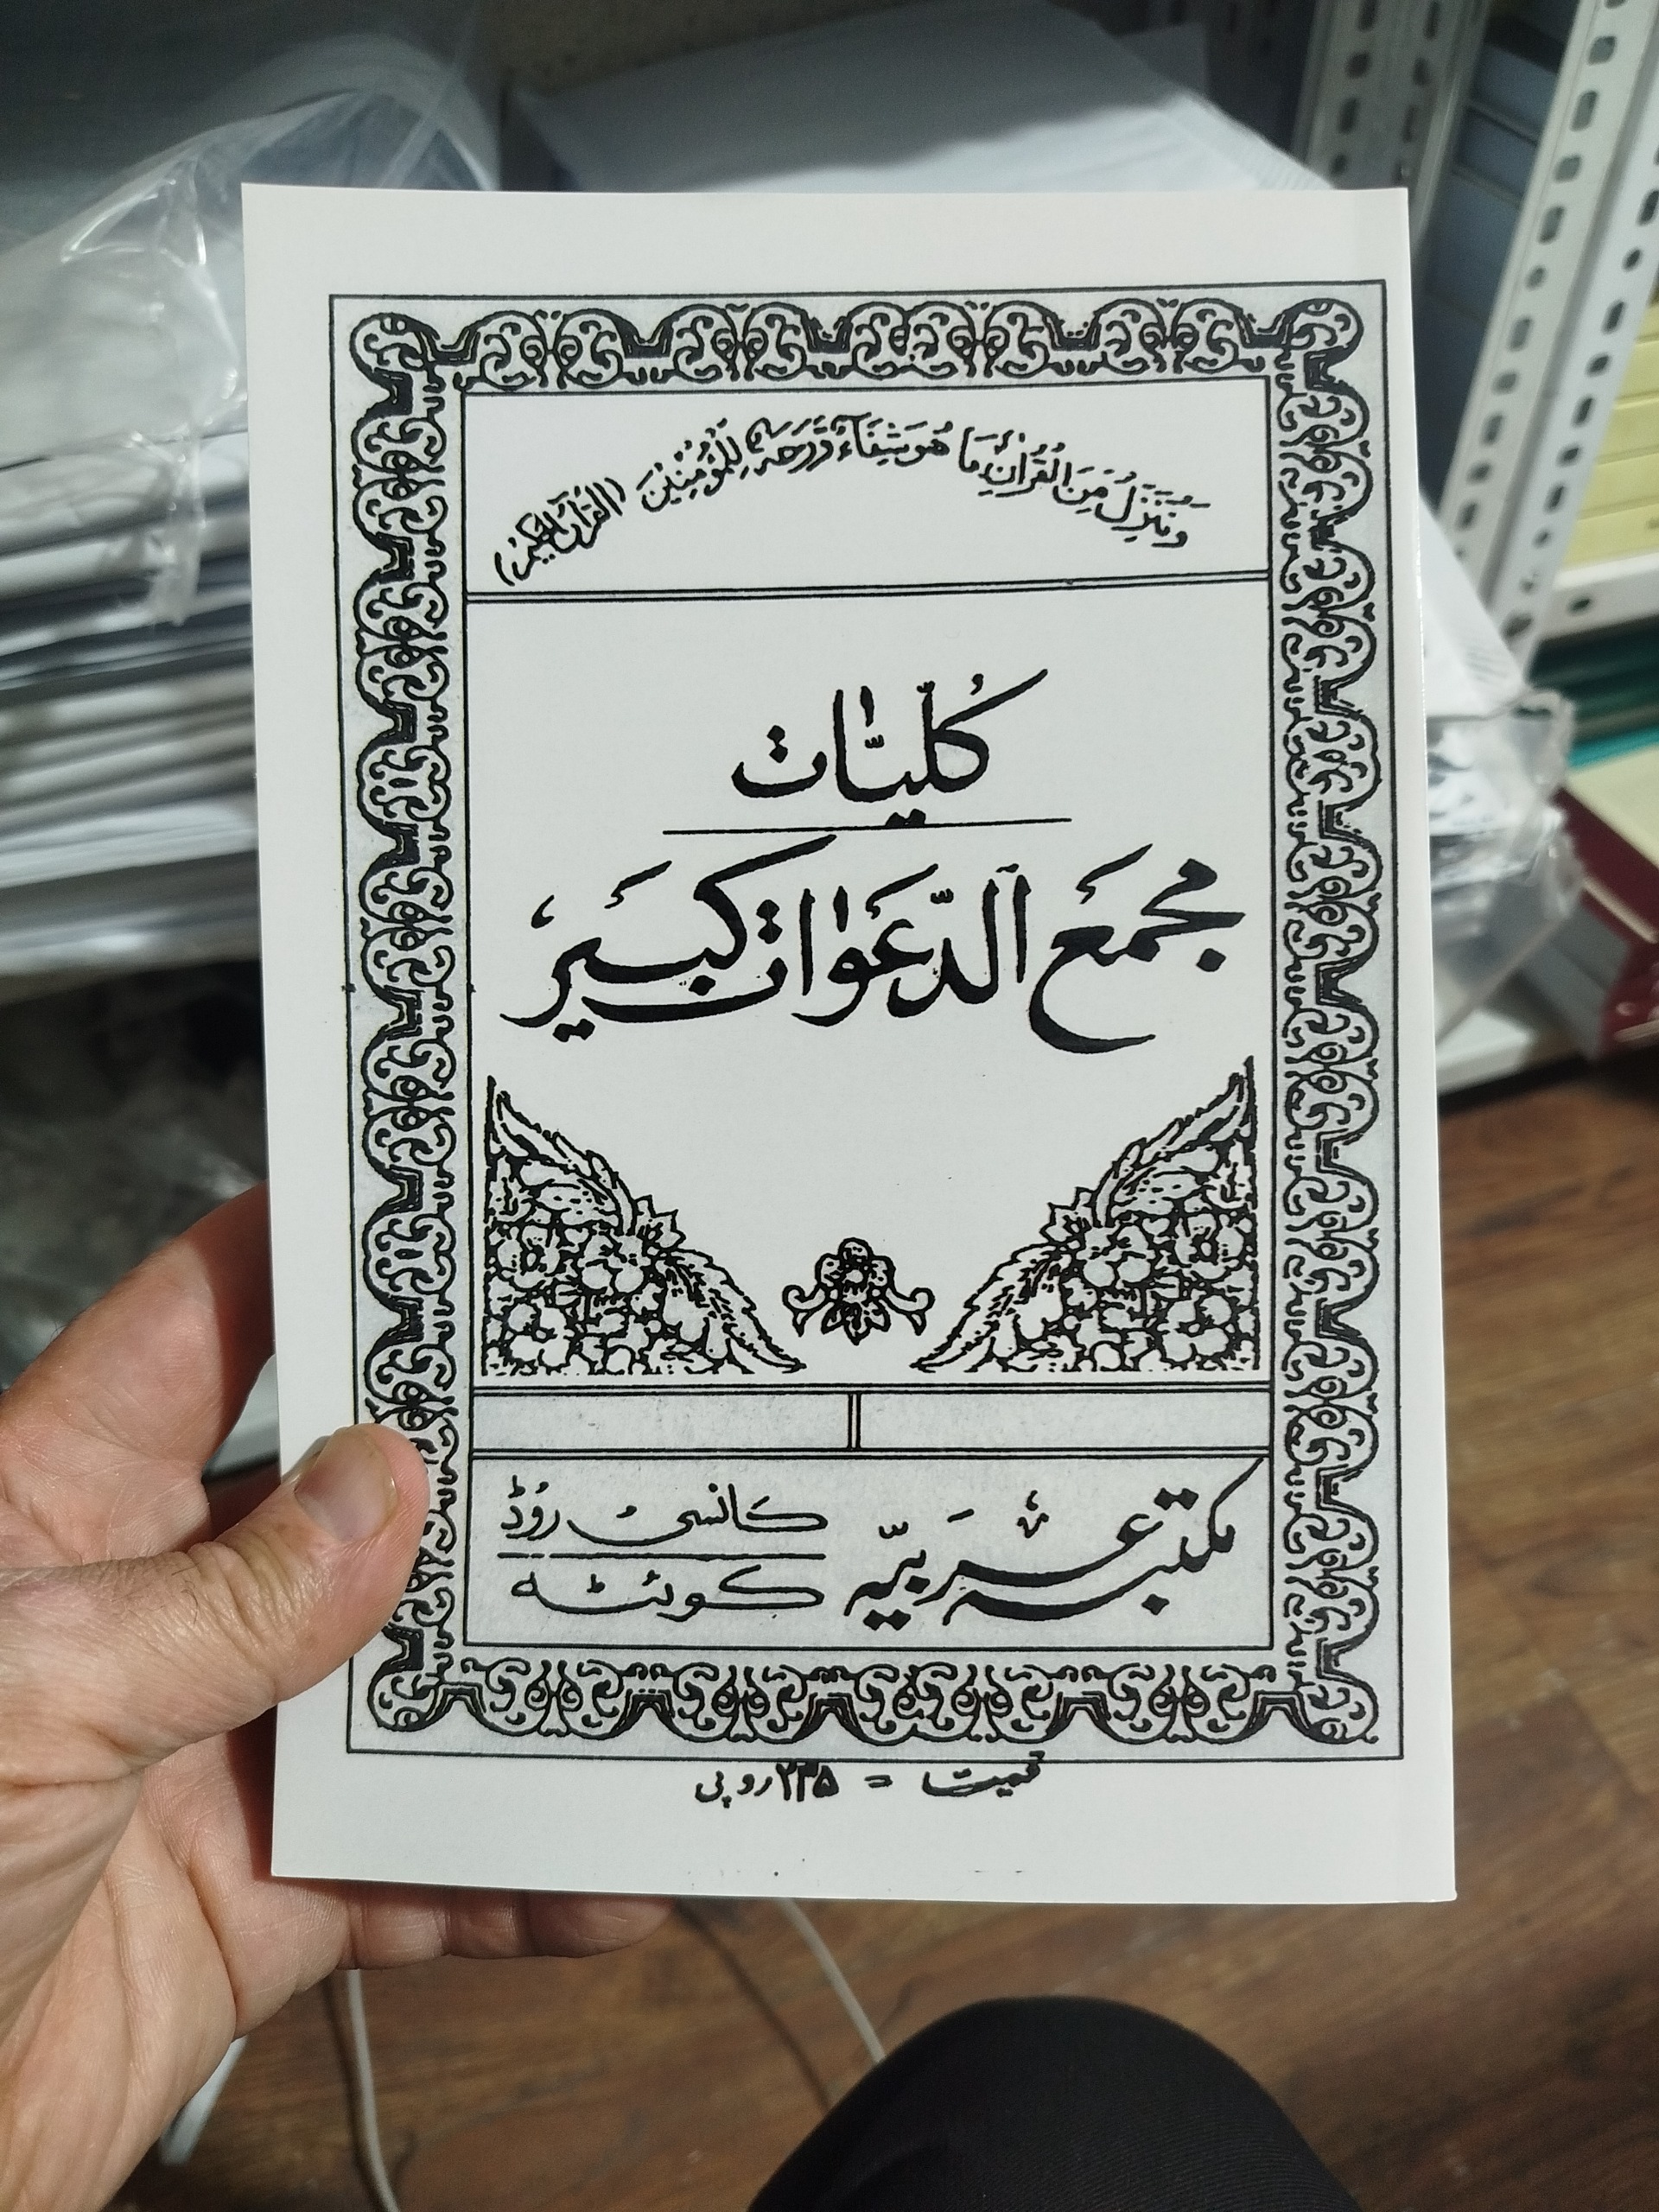 وَنُنَزِّلُ مِنَ الْقُرْاٰنِ مَا هُوَ شِفَآءٌ وَّرَحْمَةٌ لِّلْمُؤْمِنِيْنَ (القرآن الحکیم)
کُلّیّات
مجمَع الدّعَوات کبَیر
مکتبہ عَربیّہ
کانسی روڈ
کوئٹہ
قیمت = ۲۳۵ روپی